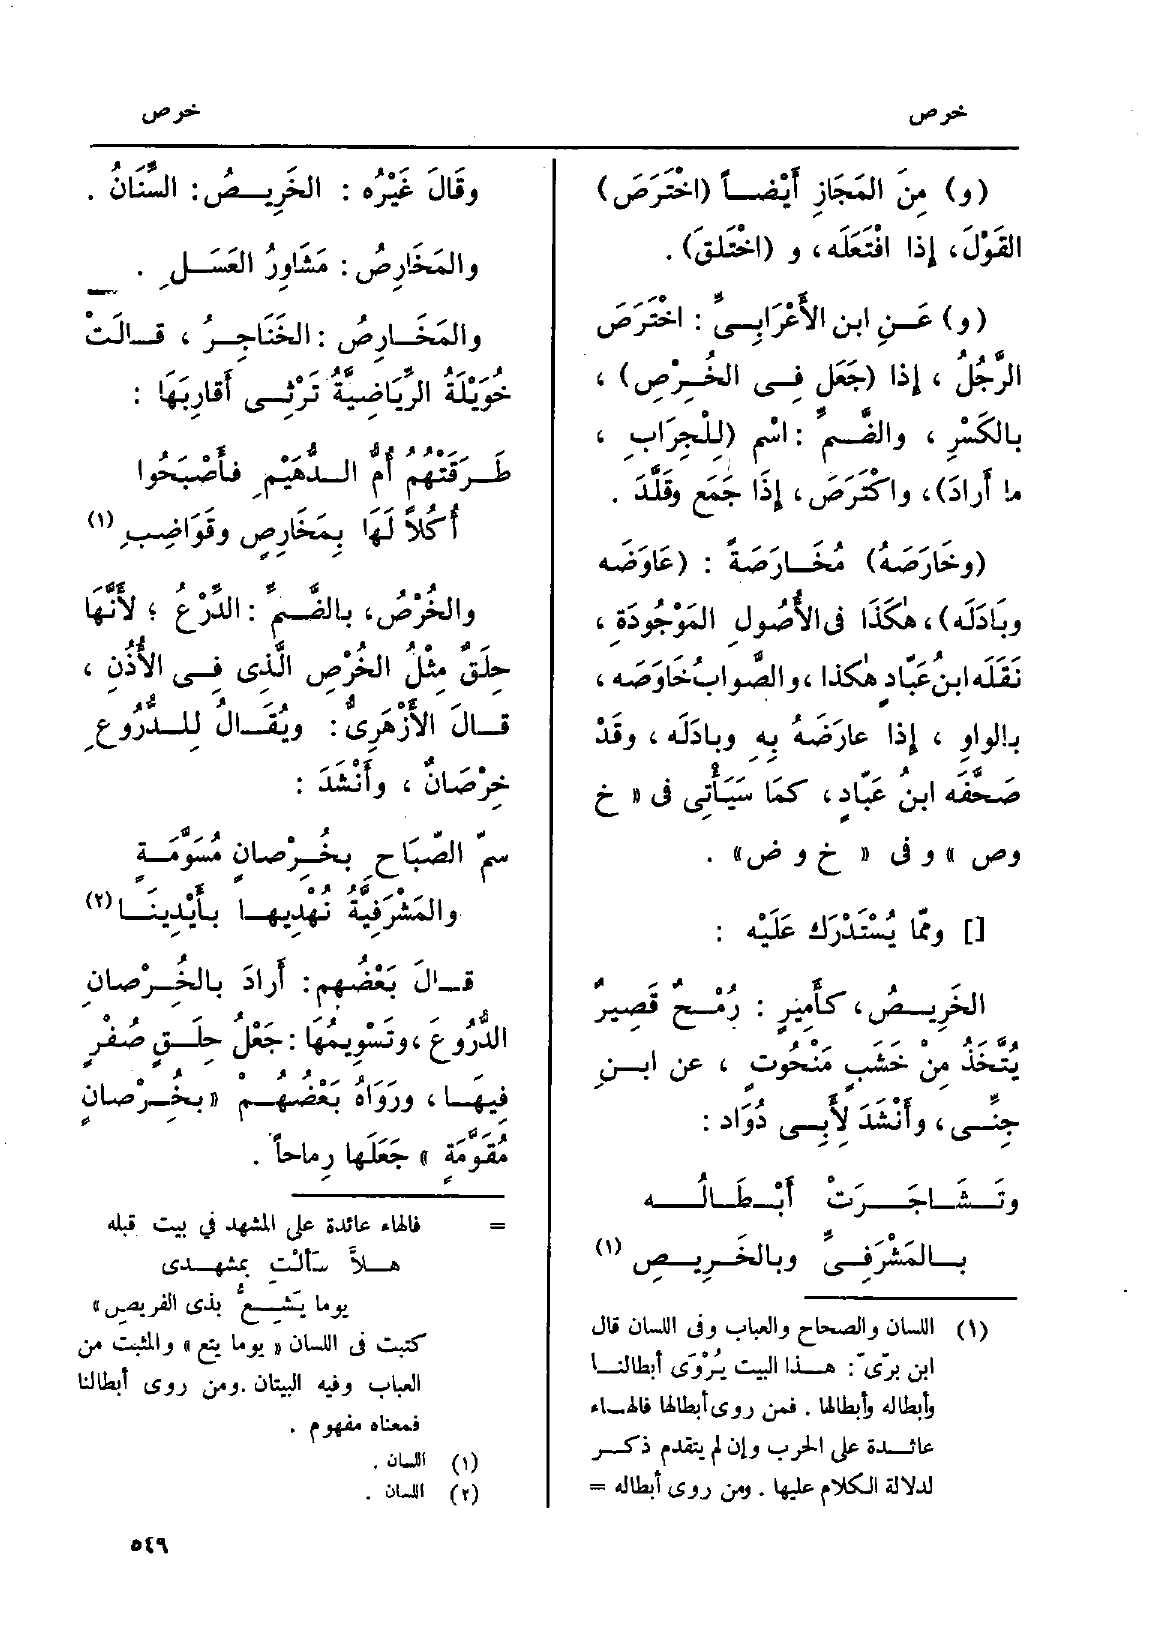 خرص
خرص
(و) مِنَ المَجَازِ أَيْضـاً (اخْتَرَصَ)
القَوْلَ، إذا افْتَعَلَه، و (اخْتَلقَ).
(و) عَـنِ ابن الأَعْرَابِـىِّ : اخْتَرَصَ
الرَّجُلُ ، إذا (جَعَل فِـى الخُـرْصِ) ،
بالكَسْرِ ، والضَّـمِّ : اسْم (لِلْجِرَابِ ،
ما أَرادَ)، واكْتَرَصَ، إذَا جَمَع وقَلَّدَ .
(وخَارَصَهُ) مُخَـارَصَةً : (عَاوَضَه
وبَادَلَه)، هٰكَذَا فى الأُصُولِ المَوْجُودَةِ ،
نَقَلَه ابنُ عَبّادٍ هٰكذا ، والصَّوابُ خَاوَصَه ،
بالواوِ ، إذا عارَضَهُ بِهِ وبادَلَه ، وقَدْ
صَحَّفَه ابنُ عَبّادٍ، كمَا سَيَأْتِى فى « خ
وص » و فى « خ و ض» .
[] ومّما يُسْتَدْرَك عَلَيْه :
الخَرِيـصُ، كأَمِيرٍ : رُمْـحٌ قَصِيرٌ
يُتَّخَذُ مِنْ خَشَبٍ مَنْحُوتٍ ، عن ابـنِ
جِنِّـى ، وأَنْشَدَ لأَبِـى دُوَاد :
وتَـشَـاجَـرَتْ أَبْـطَـالُـــه
بـالمَشْرَفِـىِّ وبالخَـرِيـصِ (١)
(١) اللسان والصحاح والعباب وفى اللسان قال
ابن برّىّ : هـذا البيت يُرْوَى أبطالنـا
وأبطاله وأبطالها . فمن روى أبطالها فالهـاء
عائـدة على الحرب وإن لم يتقدم ذكـر
لدلالة الكلام عليها . ومن روى أبطاله =
وقَالَ غَيْرُه : الخَرِيـصُ : السِّنَانُ .
والمَخَارِصُ : مَشَاورُ العَسَـلِ .
والمَخَـارِصُ : الخَنَاجِـرُ ، قـالَتْ
خُوَيْلَةُ الرِّيَاضِيَّةُ تَرْثِـى أَقارِبَهَا :
طَـرَقَتْهُمُ أُمُّ الـدُّهَيْمِ فأَصْبَحُوا
أُكُلاً لَهَا بِمَخَارِصٍ وقَوَاضِبِ (١)
والخُرْصُ، بالضَّـمِّ : الدِّرْعُ ؛ لأَنَّهَا
حِلَقٌ مِثْلُ الخُرْصِ الَّذِى فِـى الأُذُنِ ،
قـالَ الأَزْهَرِىُّ : ويُقَـالُ لِلـدُّرُوعِ
خِرْصَانٌ ، وأَنْشَدَ :
سمّ الصَّبَاحِ بِخُـرْصانٍ مُسَوَّمَـةٍ
والمَشْرَفِيَّةُ نُهْدِيهـا بـأَيْدِينَـا (٢)
قـالَ بَعْضُهم : أَرادَ بالخُـرْصانِ
الدُّرُوعَ ، وتَسْوِيمُهَا : جَعْلُ حِلَـقٍ صُفْرٍ
فِيهَـا ، ورَوَاهُ بَعْضُهُـمْ «بخُـرْصَانٍ
مُقَوَّمَةٍ » جَعَلَها رِماحاً .
= فالهاء عائدة على المشهد في بيت قبله
هـلاَّ سَأَلْتِ بمشهـدى
يوما يَتَـعُّ بذى الفريصِ»
كتبت فى اللسان « يوما يتع » والمثبت من
العباب وفيه البيتان .ومن روى أبطالنا
فمعناه مفهوم .
(١) اللسان .
(٢) اللسان .
٥٤٩